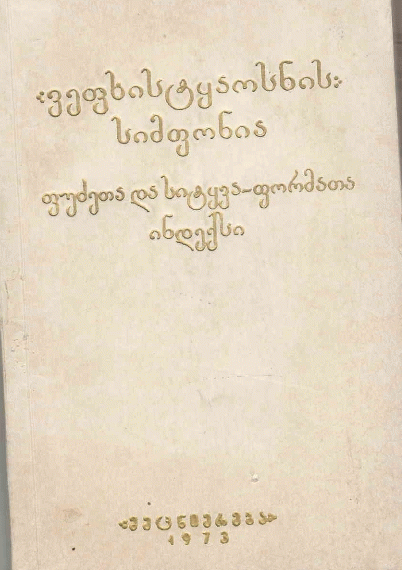 «ვეფხისტყაოსნის»
სიმფონია
ფუძეთა და სიტყვა-ფორმათა
ინდექსი
«მეცნიერება»
1973